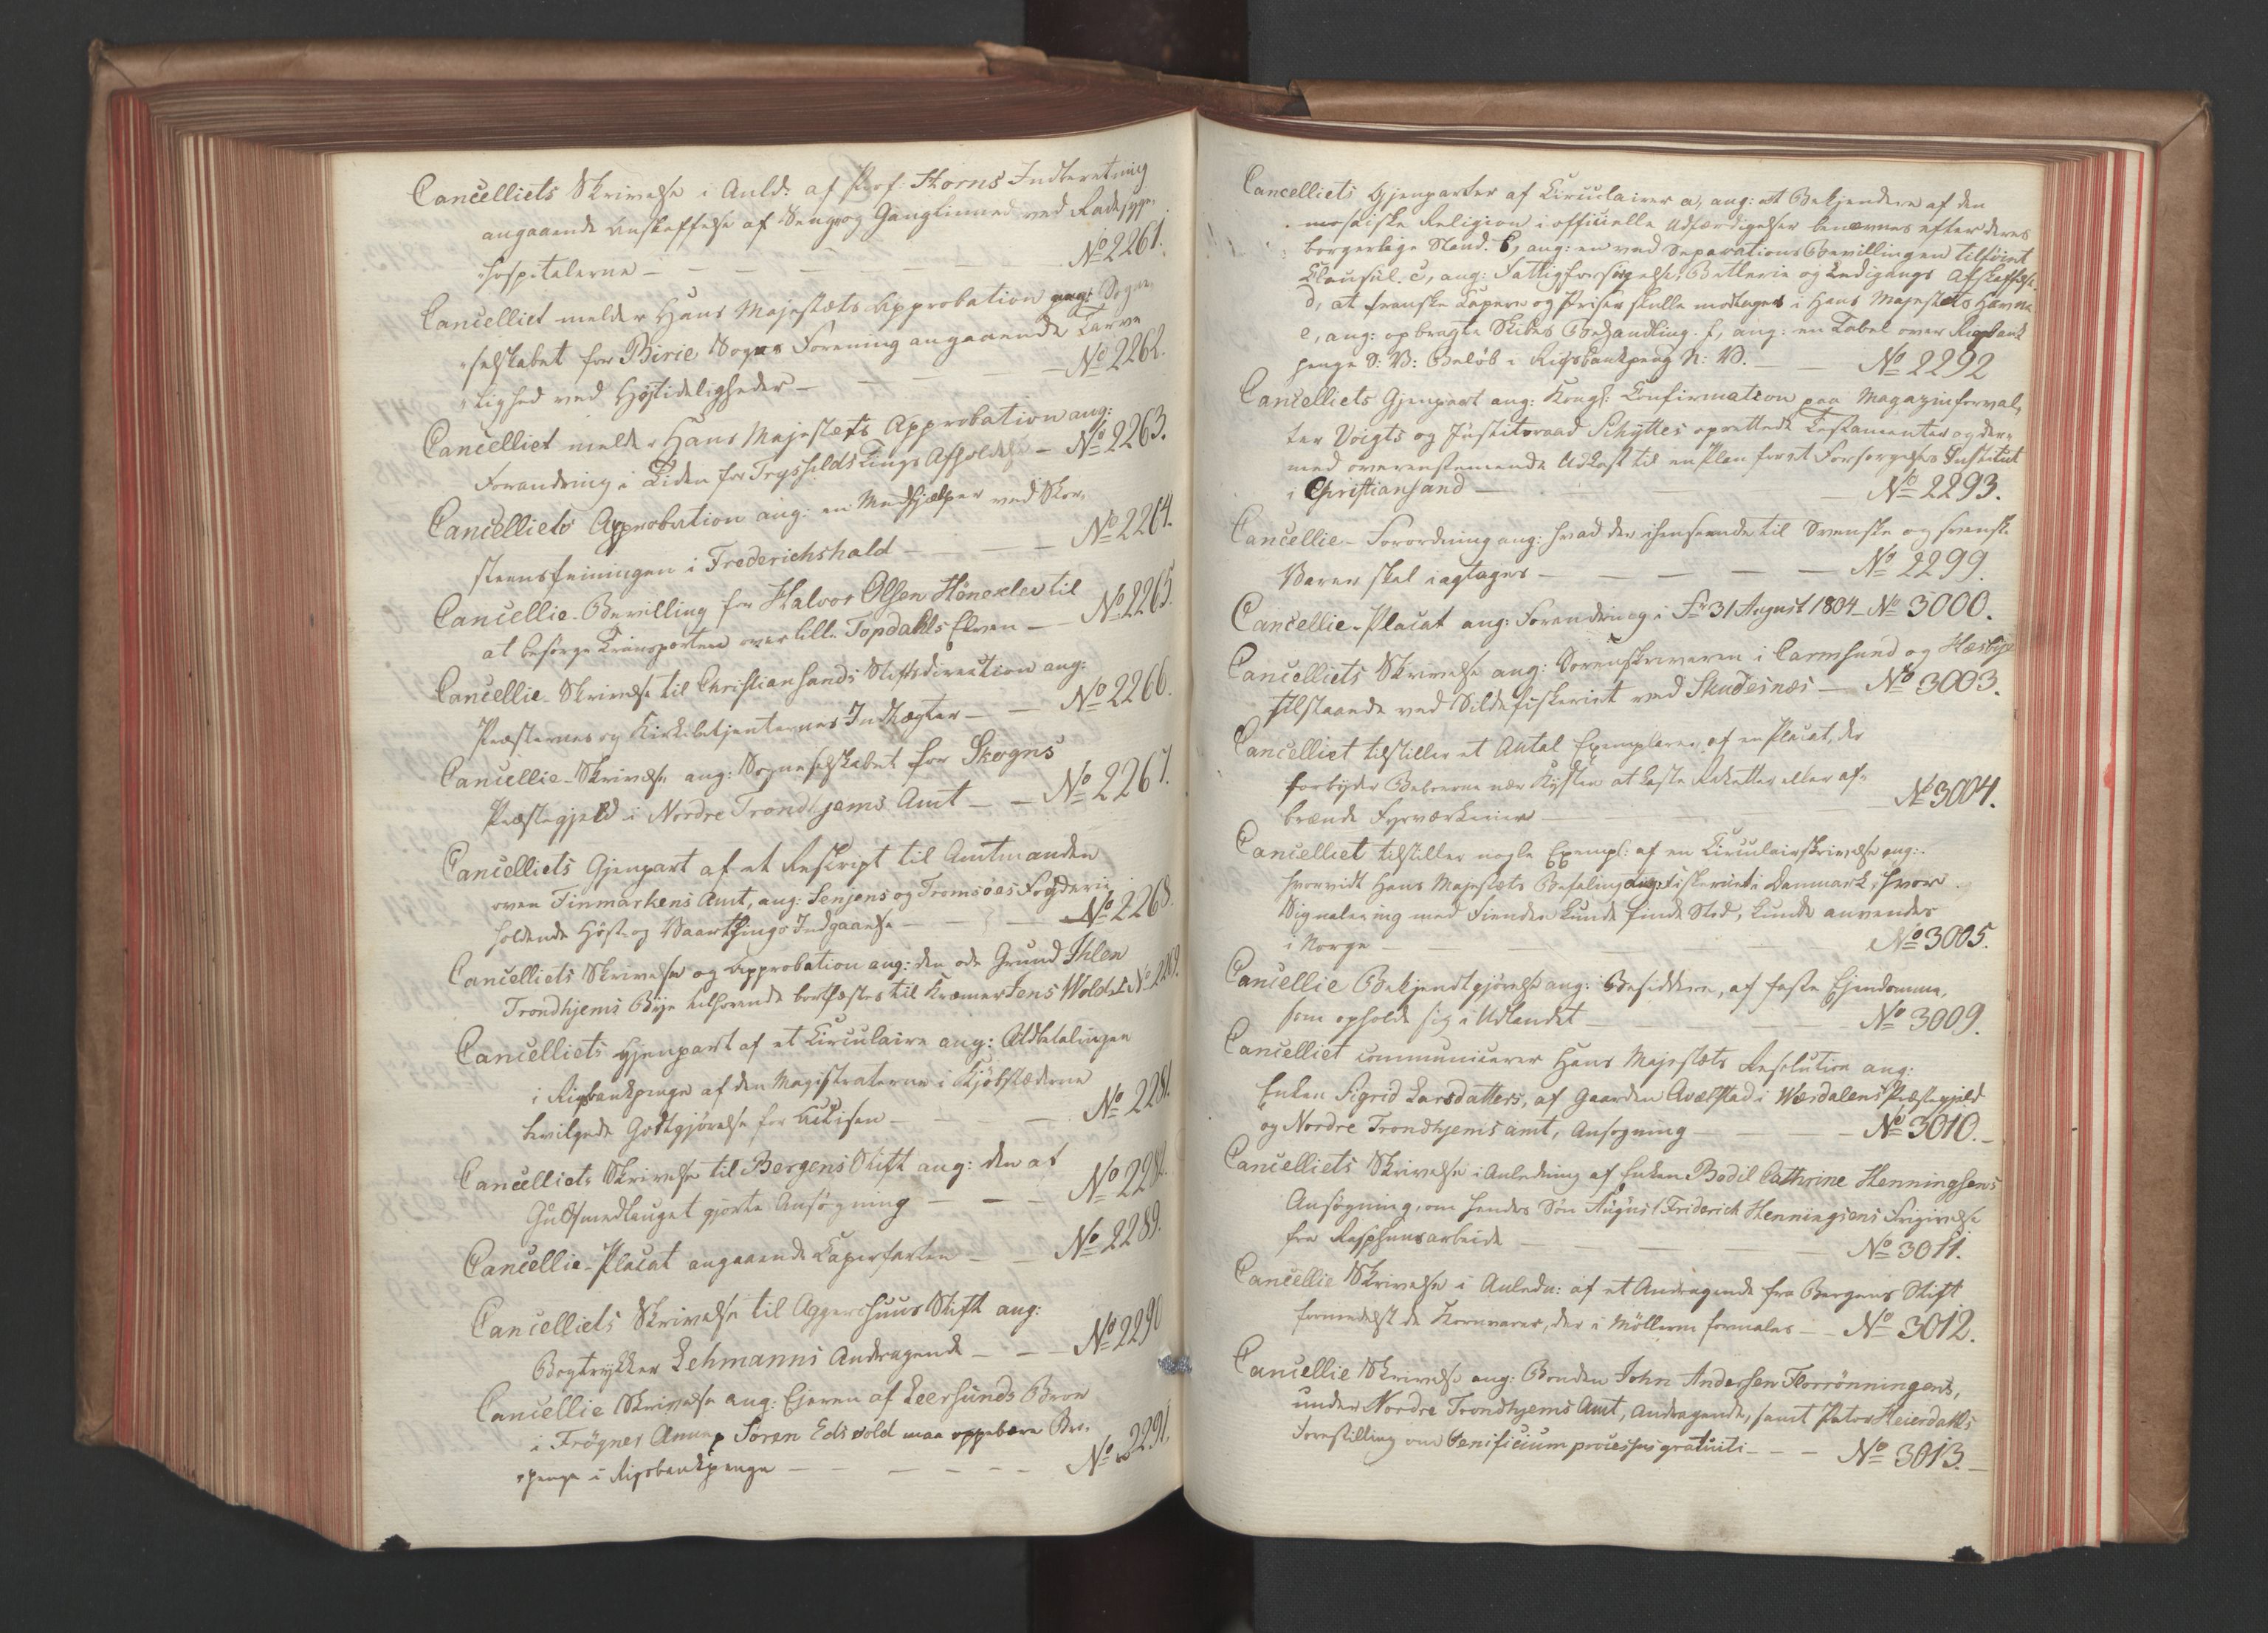 Cancelliets Skrivelse i Anld: af Prof: Thorns Indberetning
angaaende Anskaffelse af Senge og Ganglinned ved Radesyge-
hospitalerne — No 2261.
Cancelliet melder Hans Majestæts Approbation ang: Sogne-
selskabet for Birie Sogns Forening angaaende Tarve-
lighed ved Høitideligheder — No 2262.
Cancelliet melder Hans Majestets Approbation ang:
Forandring i Tiden for Trysfilds Tings Afholdelse — No 2263.
Cancelliets Approbation ang: en Medhjælper ved Skor-
steensfeiningen i Frederichshald — No 2264.
Cancellie-Bevilling for Halvor Olsen Hönexlev til
at besørge Transporten over lille Topdahls Elven — No 2265.
Cancellie-Skrivelse til Christiansands Stiftsdirection ang:
Præsternes og Kirkebetjenternes Indtægter — No 2266.
Cancellie-Skrivelse ang: Sogneselskabet for Skogns
Præstegjeld i Nordre Trondhjems Amt — No 2267.
Cancelliets Gjenpart af et Rescript til Amtmanden
over Finmarkens Amt, ang: Senjens og Tromsöes Fogderie
holdende Høst- og Vaarthings Indgaaelse — No 2268.
Cancelliets Skrivelse og Approbation ang: den øde Grund Ihlen
Trondhjems Bye tilhørende bortfæstes til Kræmer Jens Wold No 2269.
Cancelliets Gjenpart af et Circulaire ang: Udbetalingen
i Rigsbankpenge af den Magistraterne i Kjøbstæderne
bevilgede Godtgjørelse for Accisen — No 2281.
Cancelliets Skrivelse til Bergens Stift ang: den af
Guldsmedlauget gjorte Ansøgning — No 228
Cancellie-Placat angaaende Caperfarten — No 2289.
Cancelliets Skrivelse til Aggershuus Stift ang:
Bogtrykker Lehmanns Andragende — No 2290
Cancellie Skrivelse ang: Ejeren af Leersunds Broe
i Frögner Annex Sören Edsvold maa oppebære Bro-
penge i Rigsbankpenge — No 2291.
Cancelliets Gjenparter af Circulairer a, ang: at Bekjendere af den
mosaiske Religion i officielle Udfærdigelser benævnes efter deres
borgerlige Stand. b, ang: en ved Separations Bevillingen tilføiet
Clausul. c, ang: Fattigforsørgelse, Betlerie og Ledigangs Afskaffelse.
d, at franske Capere og Priser skulle modtages i Hans Majestæts Havne
e, ang: opbragte Skibes Behandling. f, ang: en Tabel over Rigsbank
penge S: V: Beløb i Rigsbankpeng N: V. — No 2292
Cancelliets Gjenpart ang: Kongl: Confirmation paa Magazinforval-
ter Voigts og Justitsraad Schyttes oprettede Testamenter og der-
med overenstemmende Udkast til en Plan for et Forsørgelses Institut
i Christiansand — No 2293.
Cancellie-Forordning ang: hvad der i henseende til Svenske og svenske
Varer skal iagtages — No 2299.
Cancellie-Placat ang: Forandring i Fr 31 August 1804 — No 3000.
Cancelliets Skrivelse ang: Sorenskriveren i Carmsund og Hæsbye
tilstaaende ved Silde fiskeriet ved Skudesnæs — No 3003.
Cancelliet tilstiller et Antal Exemplarer af en Placat, der
forbyder Beboerne nær Kysten at kaste Raketter eller af-
brænde Fyrværkerier — No 3004.
Cancelliet tilstiller nogle Exempl: af en Circulairskrivelse ang:
hvorvidt Hans Majestæts Befaling ang: Fiskeriet i Danmark, hvor
Signalering med Fienden kunde finde Sted, kunde anvendes
i Norge — No 3005.
Cancellie Bekjendtgjørelse ang: Besiddere, af faste Ejendomme,
som opholde sig i Udlandet — No 3009.
Cancelliet communicerer Hans Majestæts Resolution ang:
Enken Sigrid Larsdatters, af Gaarden Qvælstad i Værdalens Præstegjeld
og Nordre Trondhjems amt, Ansøgning — No 3010.
Cancelliets Skrivelse i Anledning af Enken Bodil Cathrine Henningsens
Ansøgning, om hendes Søn August Friderich Henningsens Frigivelse
fra Rasphuusarbeide — No 3011.
Cancellie Skrivelse i Anledn: af et Andragende fra Bergens Stift
formedelst de Kornvarer, der i Møllerne formales — No 3012.
Cancellie Skrivelse ang: Bonden John Andersen Florrønningens,
under Nordre Trondhjems Amt, Andragende, samt Pator Heierdahls
Forestilling om benificium processus gratuiti — No 3013.